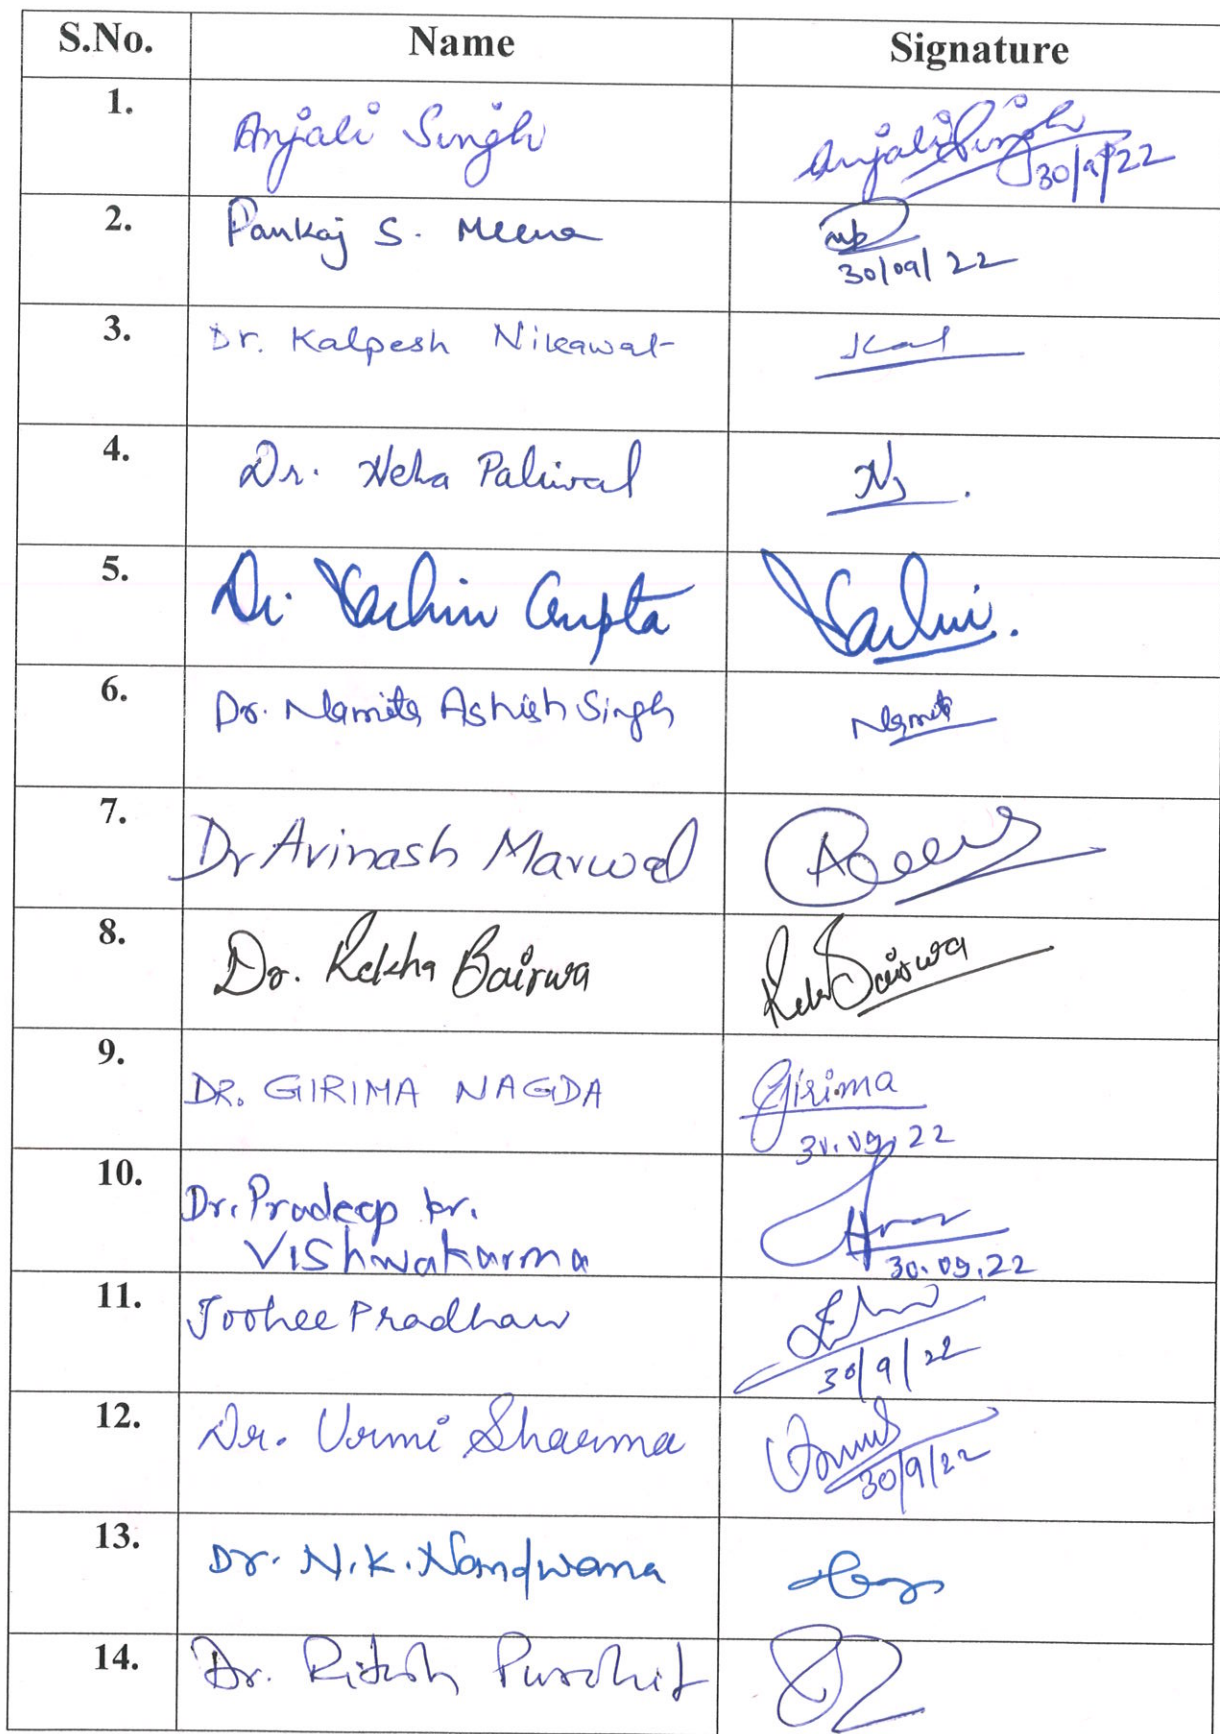 S.No. Name Signature
1. Anjali Singh Anjali Singh
30/9/22
2. Pankaj S. Meena
30/09/22
3. Dr. Kalpesh Nikawat Kal
4. Dr. Neha Paliwal N
5. Dr. Sachin Gupta Sachin.
6. Dr. Namita Ashish Singh Namita
7. Dr Avinash Marwal
8. Dr. Rekha Bairwa Rekha Bairwa
9. DR. GIRIMA NAGDA Girima
30.09.22
10. Dr. Pradeep kr.
Vishwakarma
30.09.22
11. Joohee Pradhan
30/9/22
12. Dr. Urmi Sharma
30/9/22
13. Dr. N.K. Nandwana
14. Dr. Ritesh Purohit